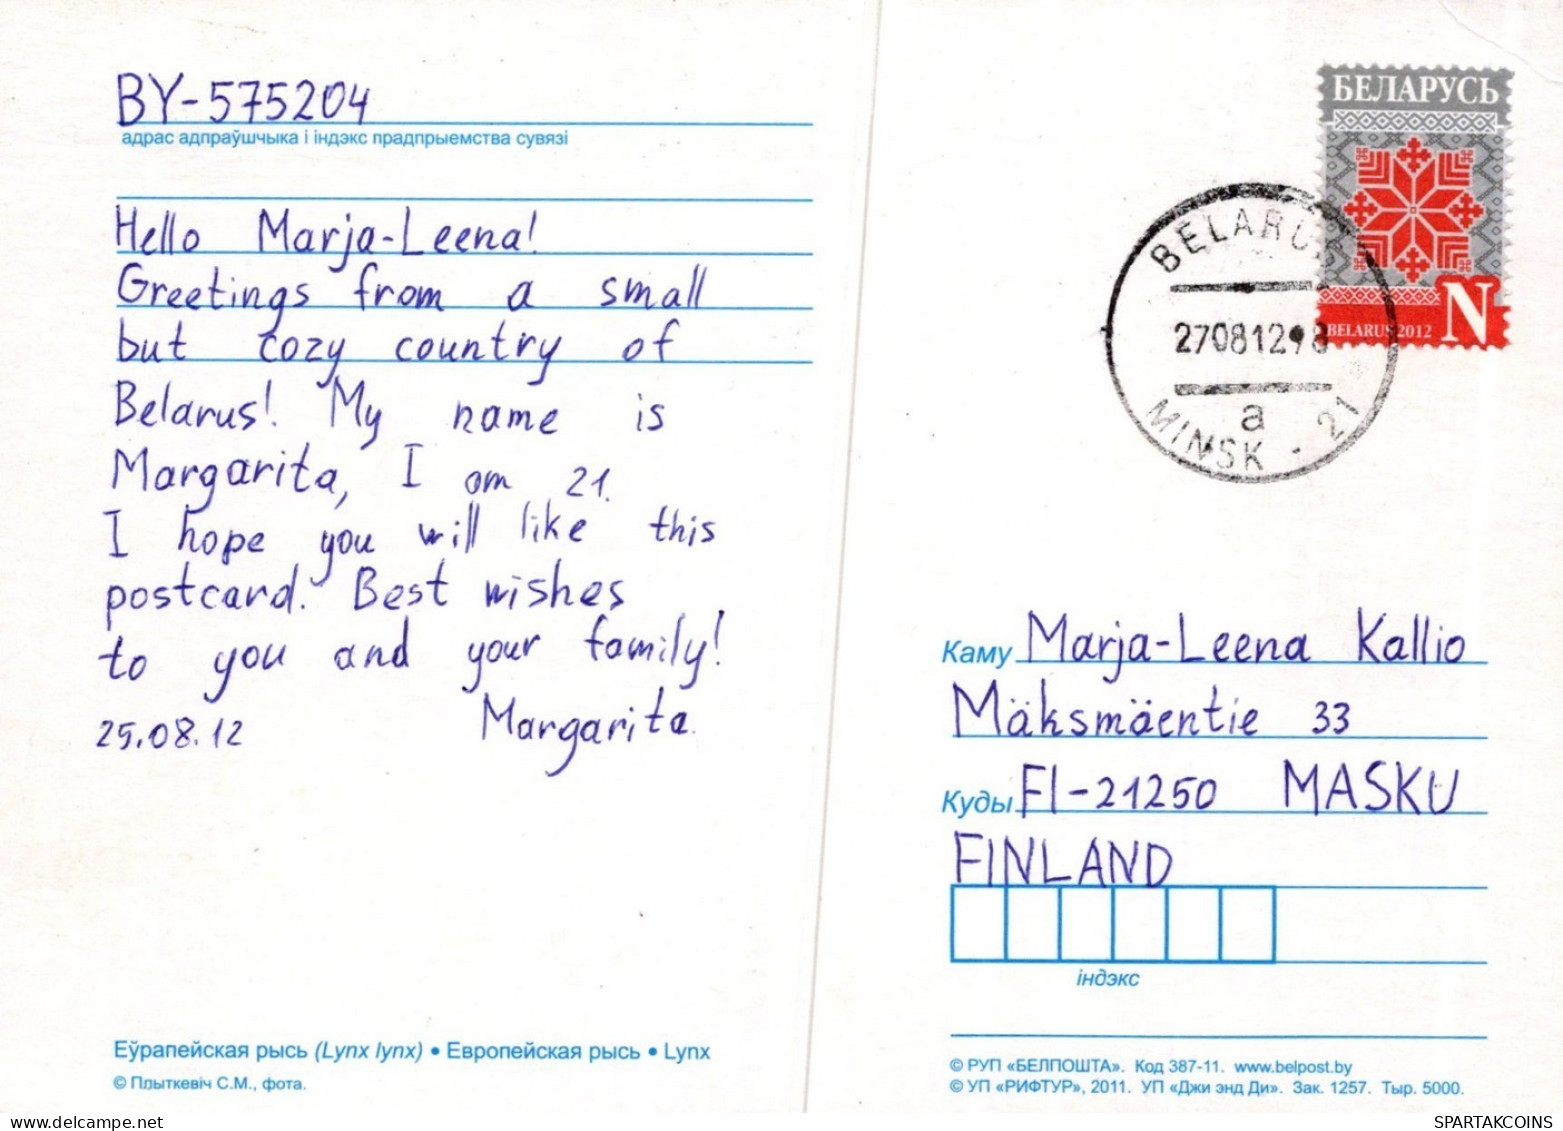 BY-575204
адрас адпраўшчыка і індэкс прадпрыемства сувязі
Hello Marja-Leena!
Greetings from a small
but cozy country of
Belarus! My name is
Margarita, I am 21.
I hope you will like this
postcard. Best wishes
to you and your family!
25.08.12 Margarita.
Еўрапейская рысь (Lynx lynx) • Европейская рысь • Lynx
© Плыткевіч С.М., фота.
БЕЛАРУСЬ
BELARUS 2012 N
BELARUS
270812
a
MINSK - 21
Каму Marja-Leena Kallio
Mäksmäentie 33
Куды FI-21250 MASKU
FINLAND
індэкс
© РУП «БЕЛПОШТА». Код 387-11. www.belpost.by
© УП «РИФТУР», 2011. УП «Джи энд Ди». Зак. 1257. Тыр. 5000.
hippostcard.com
SPARTAKCOINS